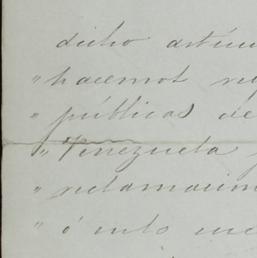 dicho artícu
" hacemos re
" públicas de
" Venezuela
" reclamacion
" ó